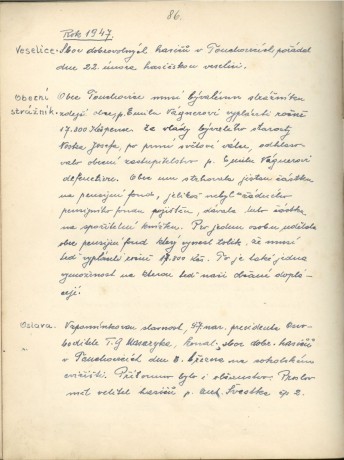 86.
Rok 1947.
Veselice. Sbor dobrovolných hasičů v Pouchovicích pořádal
dne 22. února hasičskou veselici.
Obecní Obec Pouchovice musí bývalému strážníku
strážník. zdejší obce p. Emilu Vágnerovi vypláceti ročně
17.000 Kčs pense. Za vlády bývalého starosty
Koska Josefa, po první světové válce, odhlaso-
valo obecní zastupitelstvo p. Emilu Vágnerovi
definitivu. Obec mu strhovala jistou částku
na pensijní fond, jelikož nebyl u žádného
pensijního fondu pojištěn, dávala tuto částku
na spořitelní knížku. Pro jednu osobu udělala
obec pensijní fond který vynesl tolik, že musí
teď vypláceti ročně 17.000 Kčs. To je také jedna
vymoženost na kterou teď naši občané doplá-
cejí.
Oslava. Vzpomínkovou slavnost, 97. nar. presidenta Osvo-
boditele T.G. Masaryka, konal "sbor dobr. hasičů"
v Pouchovicích dne 8. března na sokolském
cvičišti. Přítomno bylo i občanstvo. Proslov
měl velitel hasičů p. Ant. Švestka čp 2.